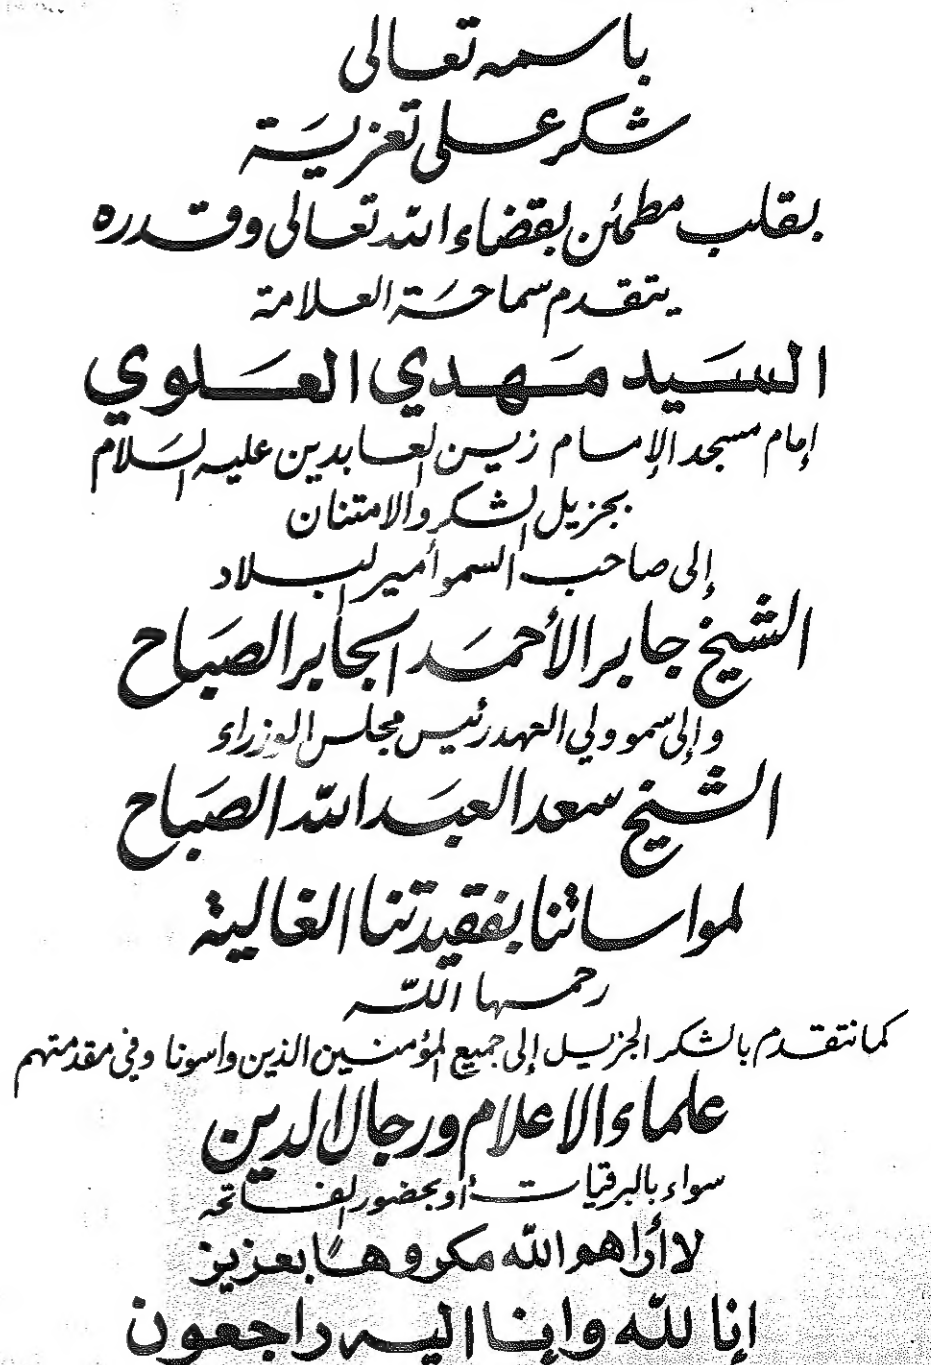 باسمه تعالى
شكر على تعزية
بقلب مطمئن بقضاء الله تعالى وقدره
يتقدم سماحة العلامة
السيد مهدي العلوي
إمام مسجد الإمام زين العابدين عليه السلام
بجزيل الشكر والامتنان
إلى صاحب السمو أمير البلاد
الشيخ جابر الأحمد الجابر الصباح
وإلى سمو ولي العهد رئيس مجلس الوزراء
الشيخ سعد العبد الله الصباح
لمواساتنا بفقيدتنا الغالية
رحمها الله
كما نتقدم بالشكر الجزيل إلى جميع المؤمنين الذين واسونا وفي مقدمتهم
علماء الاعلام ورجال الدين
سواء بالبرقيات أو بحضور الفاتحه
لا أراهم الله مكروها بعزيز
إنا لله وإنا إليه راجعون